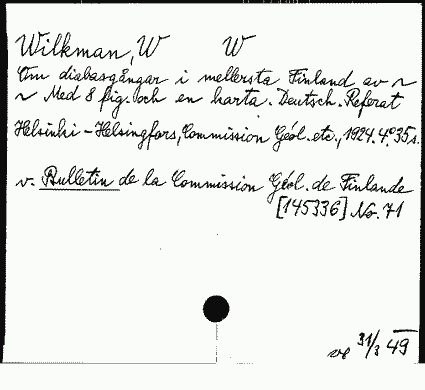 Wilkman, W W
Om diabasgångar i mellersta Finland av ~
~ Med 8 fig. och en karta. Deutsch. Referat
Helsinki - Helsingfors, Commission Géol. etc., 1924. 4° 35 s.
v. Bulletin de la Commission Géol. de Finlande
[145336] No. 71
ve 31/3 49